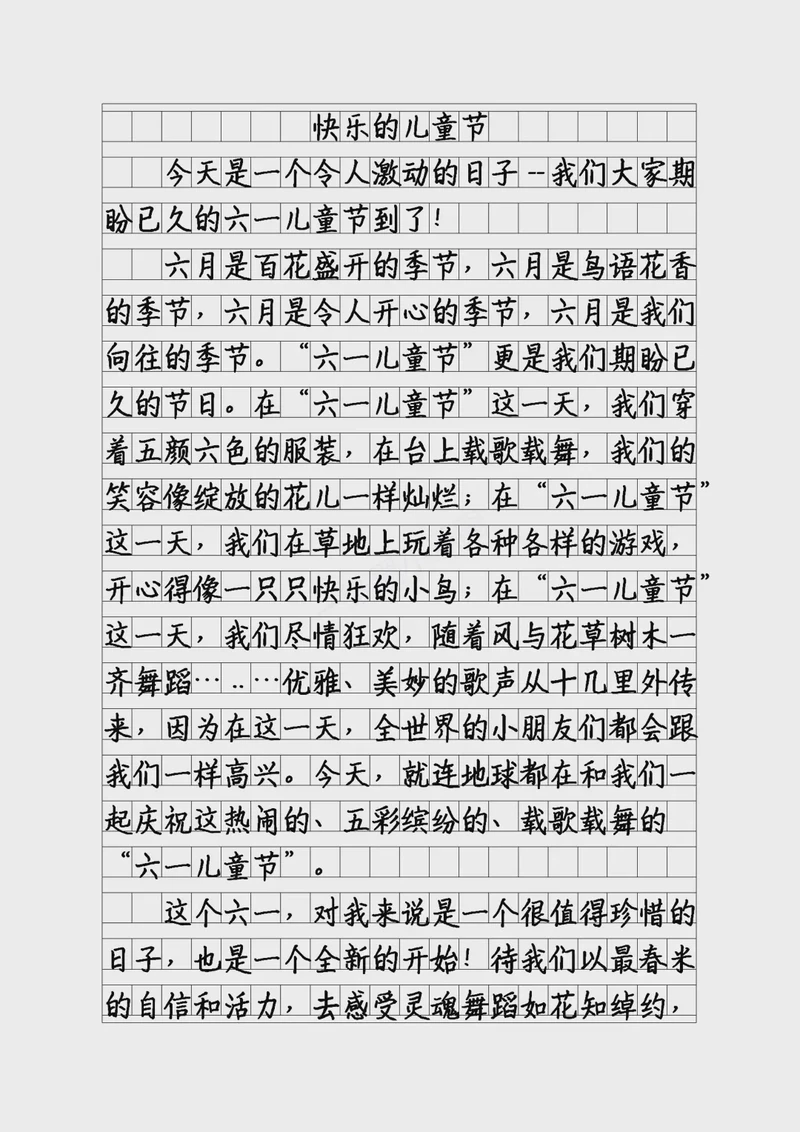 快乐的儿童节
今天是一个令人激动的日子--我们大家期
盼已久的六一儿童节到了！
六月是百花盛开的季节，六月是鸟语花香
的季节，六月是令人开心的季节，六月是我们
向往的季节。“六一儿童节”更是我们期盼已
久的节日。在“六一儿童节”这一天，我们穿
着五颜六色的服装，在台上载歌载舞，我们的
笑容像绽放的花儿一样灿烂；在“六一儿童节”
这一天，我们在草地上玩着各种各样的游戏，
开心得像一只只快乐的小鸟；在“六一儿童节”
这一天，我们尽情狂欢，随着风与花草树木一
齐舞蹈… ‥…优雅、美妙的歌声从十几里外传
来，因为在这一天，全世界的小朋友们都会跟
我们一样高兴。今天，就连地球都在和我们一
起庆祝这热闹的、五彩缤纷的、载歌载舞的
“六一儿童节”。
这个六一，对我来说是一个很值得珍惜的
日子，也是一个全新的开始！待我们以最春米
的自信和活力，去感受灵魂舞蹈如花知绰约，